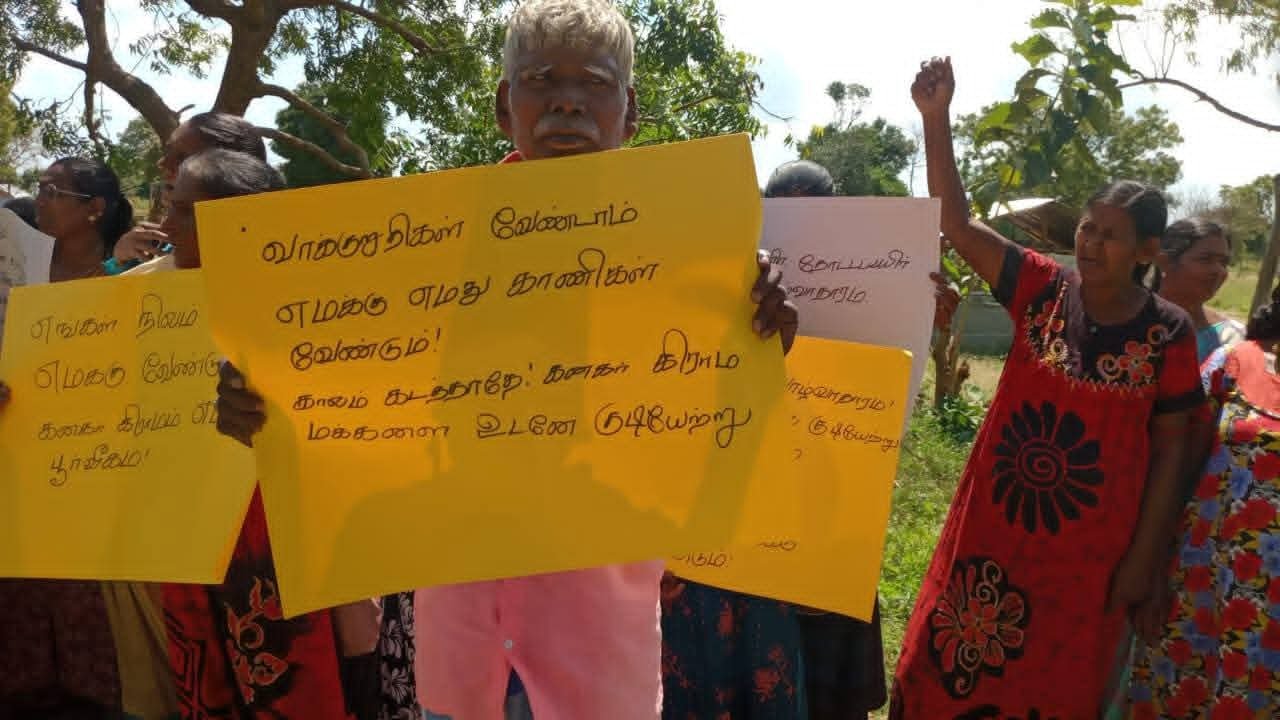 எங்கள் நிலம்
எமக்கு வேண்டு
கனகர் கிராமம் எம
பூர்வீகம்!
வாக்குறுதிகள் வேண்டாம்
எமக்கு எமது காணிகள்
வேண்டும்!
காலம் கடத்தாதே! கனகர் கிராம
மக்களை உடனே குடியேற்று
தோட்டபயிர்
வாதாரம்.
ழ்வாதாரம்!
குடியேற்று